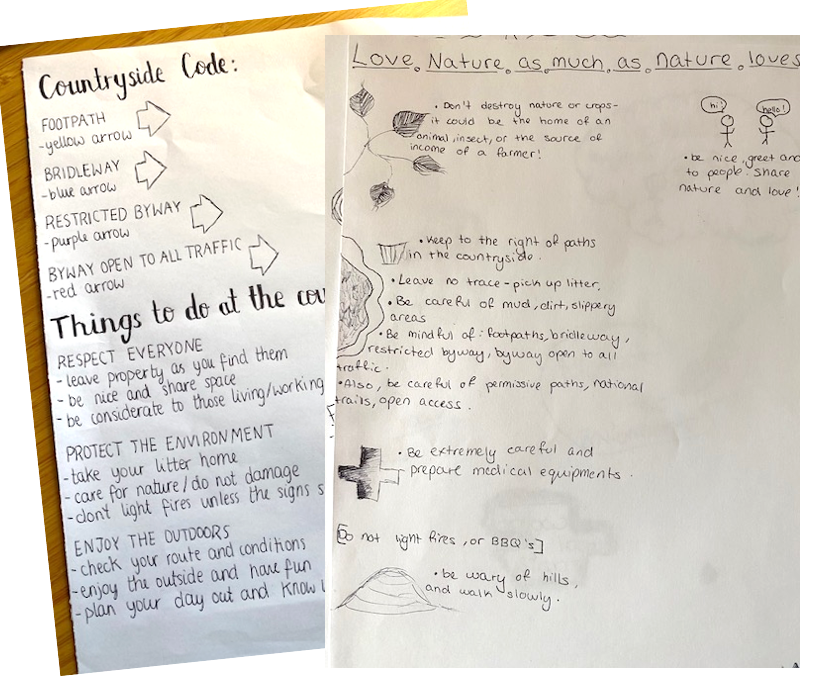 Countryside Code:
FOOTPATH
-yellow arrow
BRIDLEWAY
-blue arrow
RESTRICTED BYWAY
-purple arrow
BYWAY OPEN TO ALL TRAFFIC
-red arrow
Things to do at the
RESPECT EVERYONE
- leave property as you find them
- be nice and share space
- be considerate to those living/working
PROTECT THE ENVIRONMENT
-take your litter home
-care for nature/do not damage
-dont light fires unless the signs
ENJOY THE OUTDOORS
-check your route and conditions
-enjoy the outside and have fun
-plan your day out and know
Love Nature as much as nature loves
• Don't destroy nature or crops-
it could be the home of an
animal, insect, or the source of
income of a farmer!
hi!
hello!
• be nice, greet and
to people. Share
nature and love!
• Keep to the right of paths
in the countryside.
• Leave no trace - pick up litter.
• Be careful of mud, dirt, slippery
areas
• Be mindful of: footpaths, bridleway,
restricted byway, byway open to all
traffic.
• Also, be careful of permissive paths, national
trails, open access.
• Be extremely careful and
prepare medical equipments.
[Do not light fires, or BBQ's]
• be wary of hills,
and walk slowly.